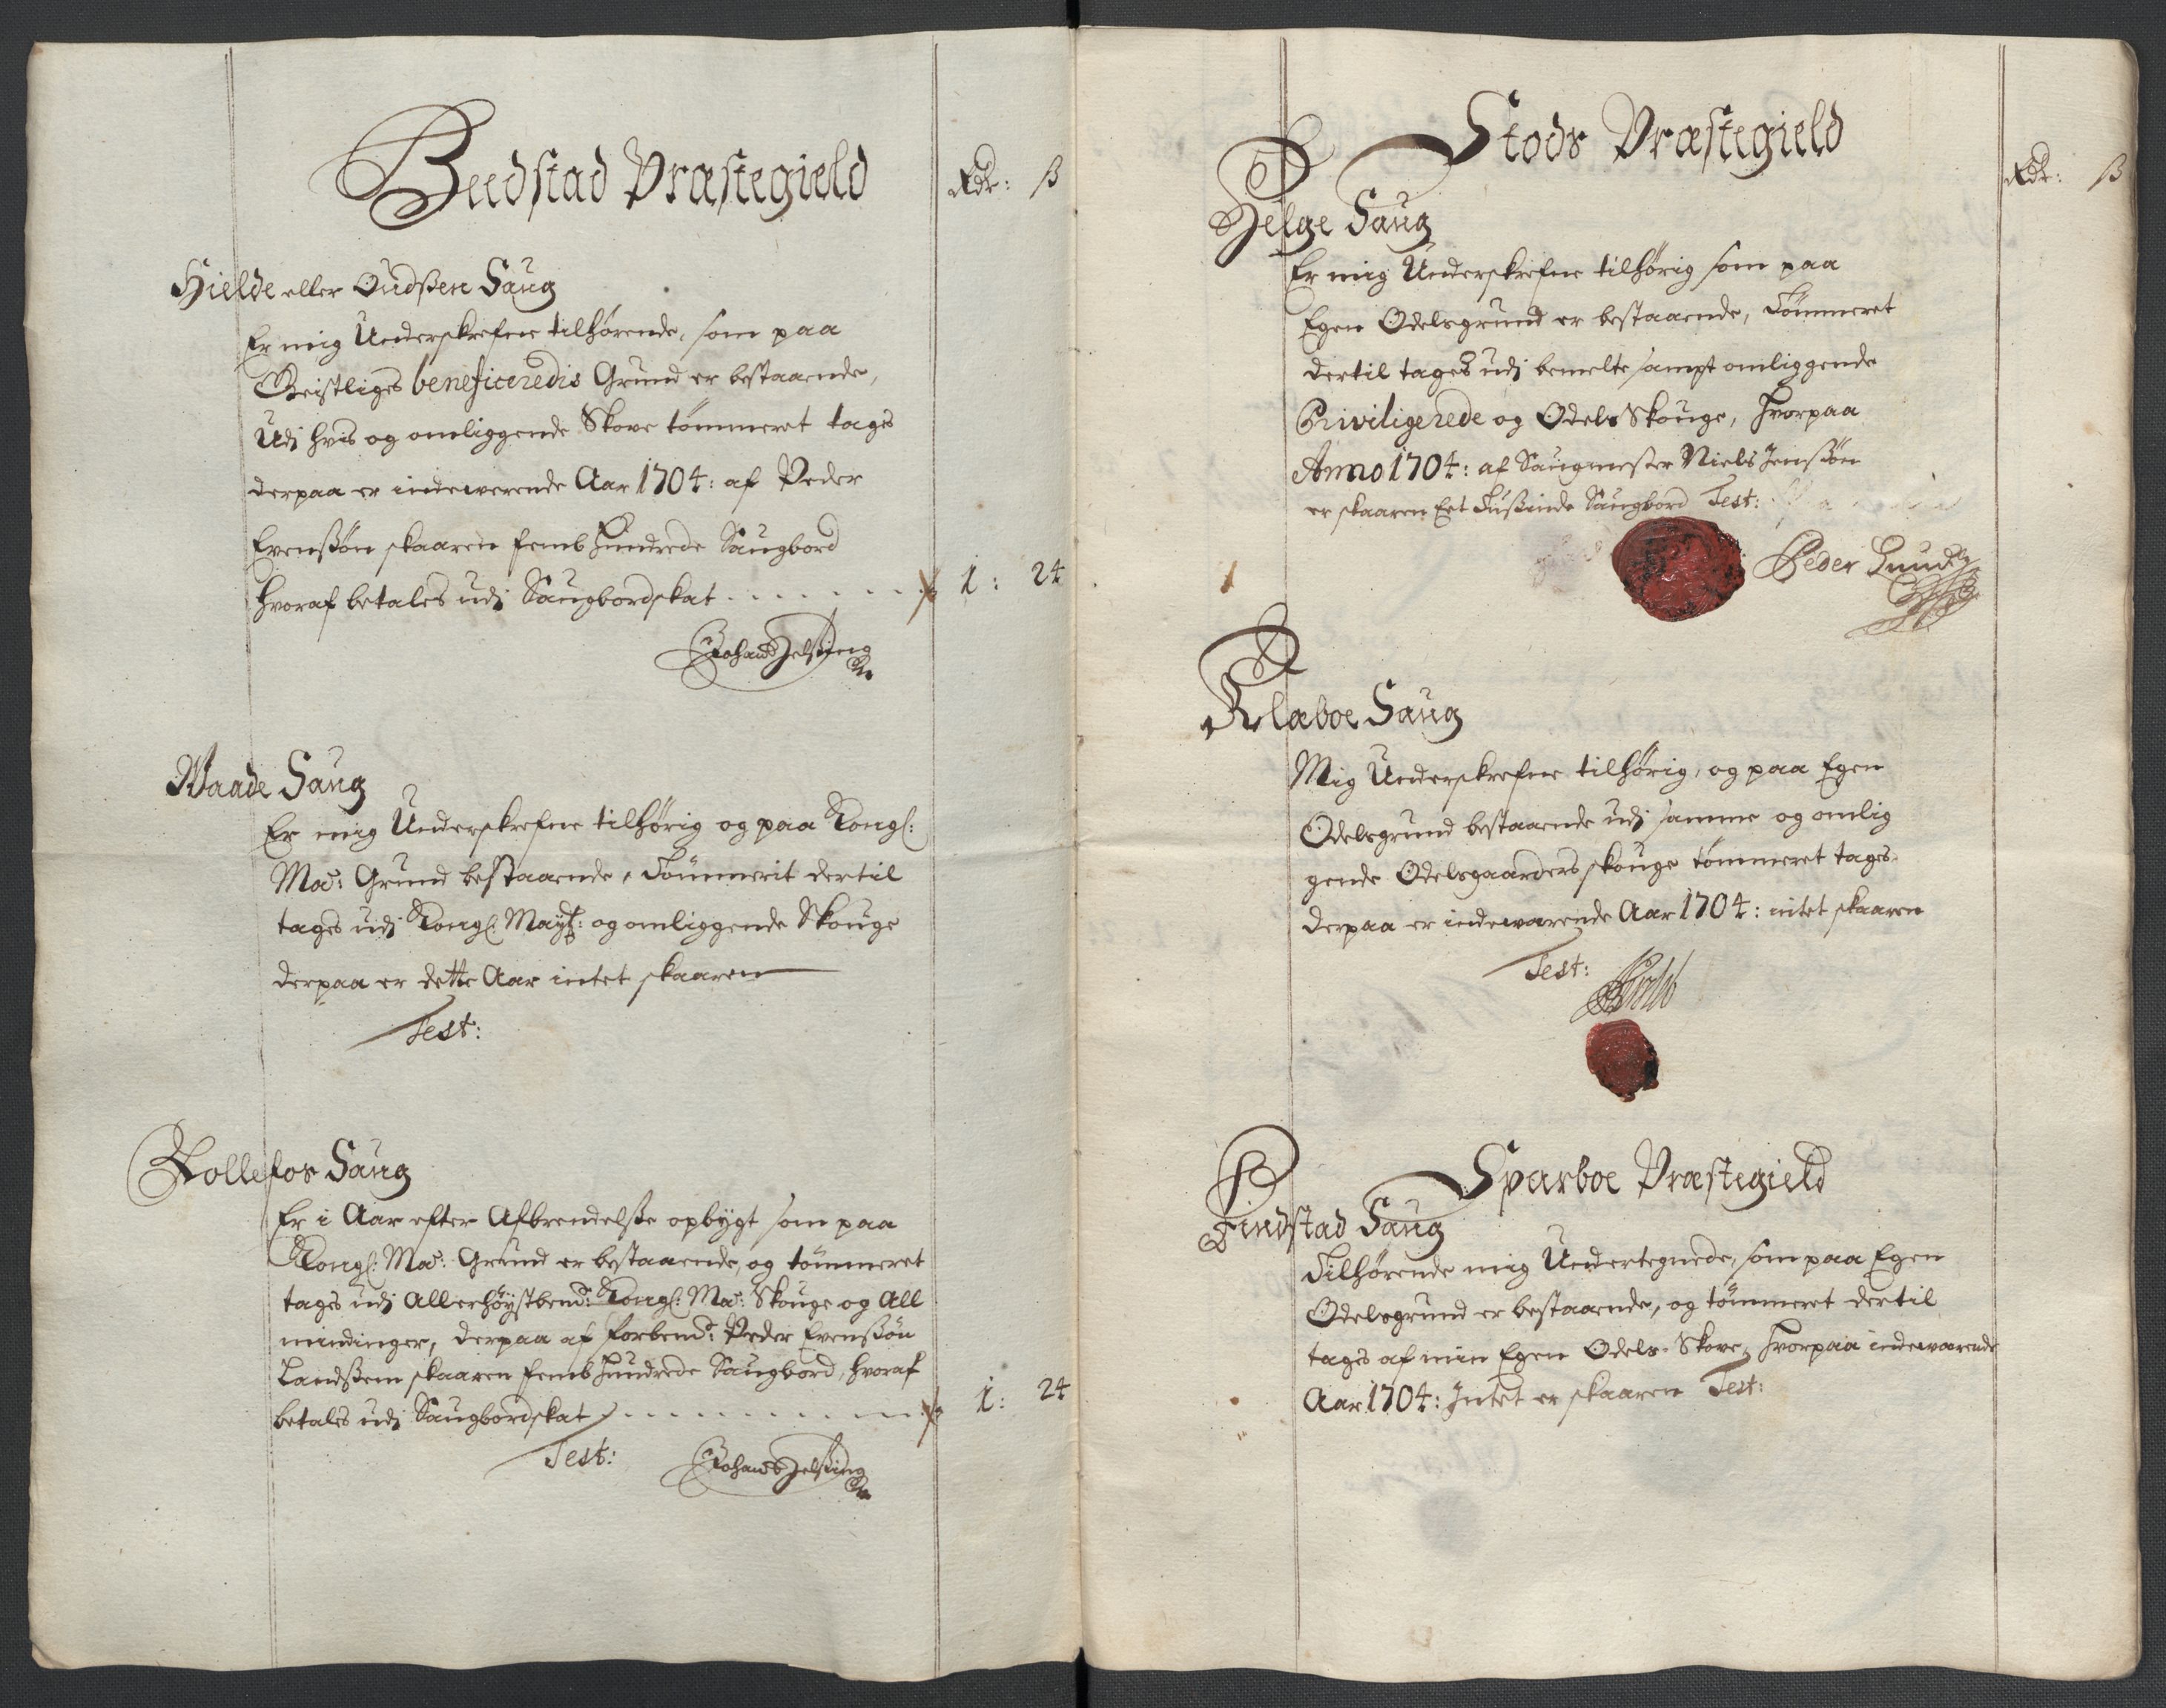 Beedstad Præstegield
Rdr: ß
Hielde eller Oudßen Saug
Er mig Underskrefne tilhørende, som paa
Geistliges beneficeredis Grund er bestaaende,
Udj hvis og omliggende Skove tømmeret tages
derpaa er indewerende Aar 1704: af Peder
Evenßøn skaaren femb Hundrede Saugbord
hvoraf betales udj Saugbordskat 1: 24
Johan Helsing
Waade Saug
Er mig Underskrefne tilhørig og paa Kongl:
Ma: Grund bestaaende, Tømmerit dertil
tages udj Kongl: Mayt: og omliggende Skouge
derpaa er dette Aar intet skaaren
Test:
Follefos Saug
Er i Aar efter Afbrendelsse opbygt som paa
Kongl: Ma: Grund er bestaaende, og tømmeret
tages udj Allerhøystbend: Kongl: Ma: Skouge og All
mindinger, derpaa af forbend: Peder Evenßøn
Landßem skaaren femb Hundrede Saugbord, hvoraf
betales udj Saugbordskat 1: 24
Test: Johan Helsing
Stods Præstegield
Rdr: ß
Helge Saug
Er mig Underskrefne tilhørig som paa
Egen Odelsgrund er bestaaende, Tømmeret
dertil tages udj bemelte sampt omliggende
Priviligerede og Odels Skouge, hvorpaa
Anno 1704: af Saugmester Niels Jenßøn
er skaaren Eet Tußinde Saugbord Test:
Peder Luud
Klæboe Saug
Mig Underskrefne tilhørig, og paa Egen
Odelsgrund bestaaende udj samme og omlig
gende Odelsgaarders skouge tømmeret tages
derpaa er indewærende Aar 1704: intet skaaren
Test:
Sparboe Præstegield
Findstad Saug
Tilhørende mig Undertegnede, som paa Egen
Odelsgrund er bestaaende, og tømmeret dertil
tages af min Egen Odels-Skove, hvorpaa indewærende
Aar 1704: Intet er skaaren Test: